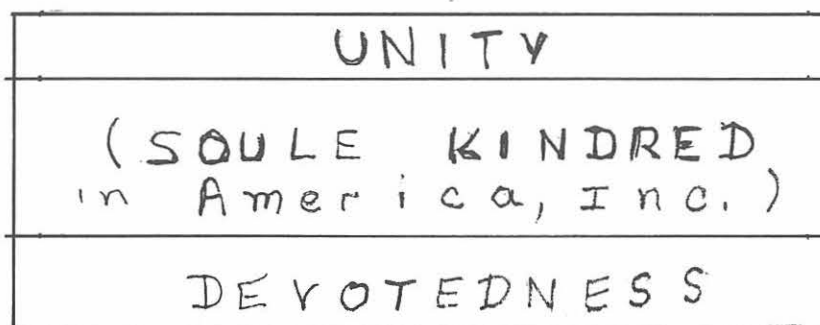 UNITY
(SOULE KINDRED
in America, Inc.)
DEVOTEDNESS